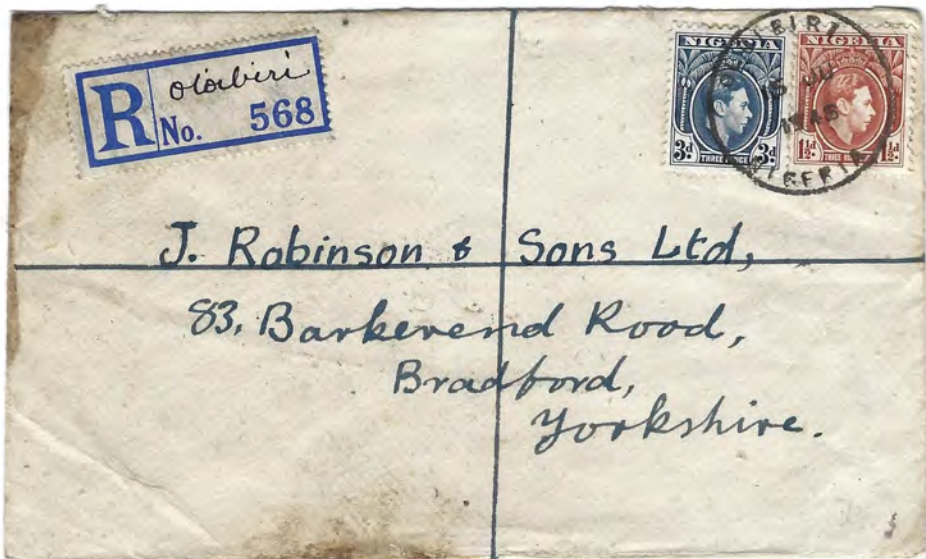 R oloibiri
No. 568
NIGERIA
3d THREE PENCE 3d
NIGERIA
1½d THREE 1½d
NIGERIA
J. Robinson & Sons Ltd,
83, Barkerend Road,
Bradford,
Yorkshire.